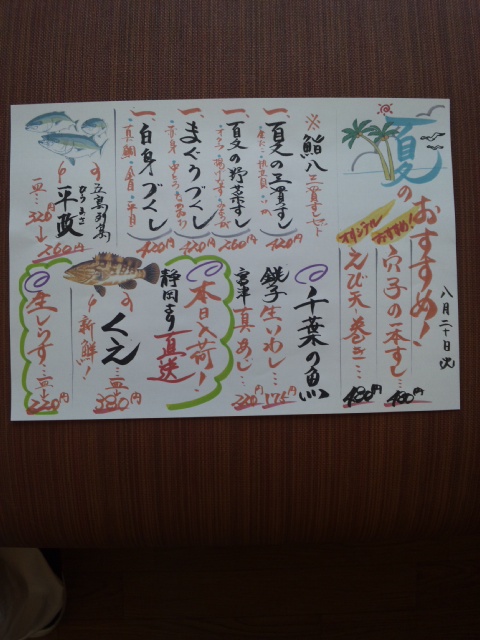 八月二十日
夏のおすすめ!
オリジナル
おすすめ!
穴子の一本すし… 480円
えび天巻き… 480円
※鮨八三貫すしセット
一、夏の三貫すし 420円
一、夏の野菜すし 260円
一、まぐろづくし
一、白身づくし 420円
真鯛
五島列島
ひらまさ
平政
一皿… 320円→260円
千葉の魚
銚子生いわし… 175円
真あじ… 220円
本日入荷!
静岡より直送
くえ 一皿 380円
新鮮!
生しらす 一皿 220円